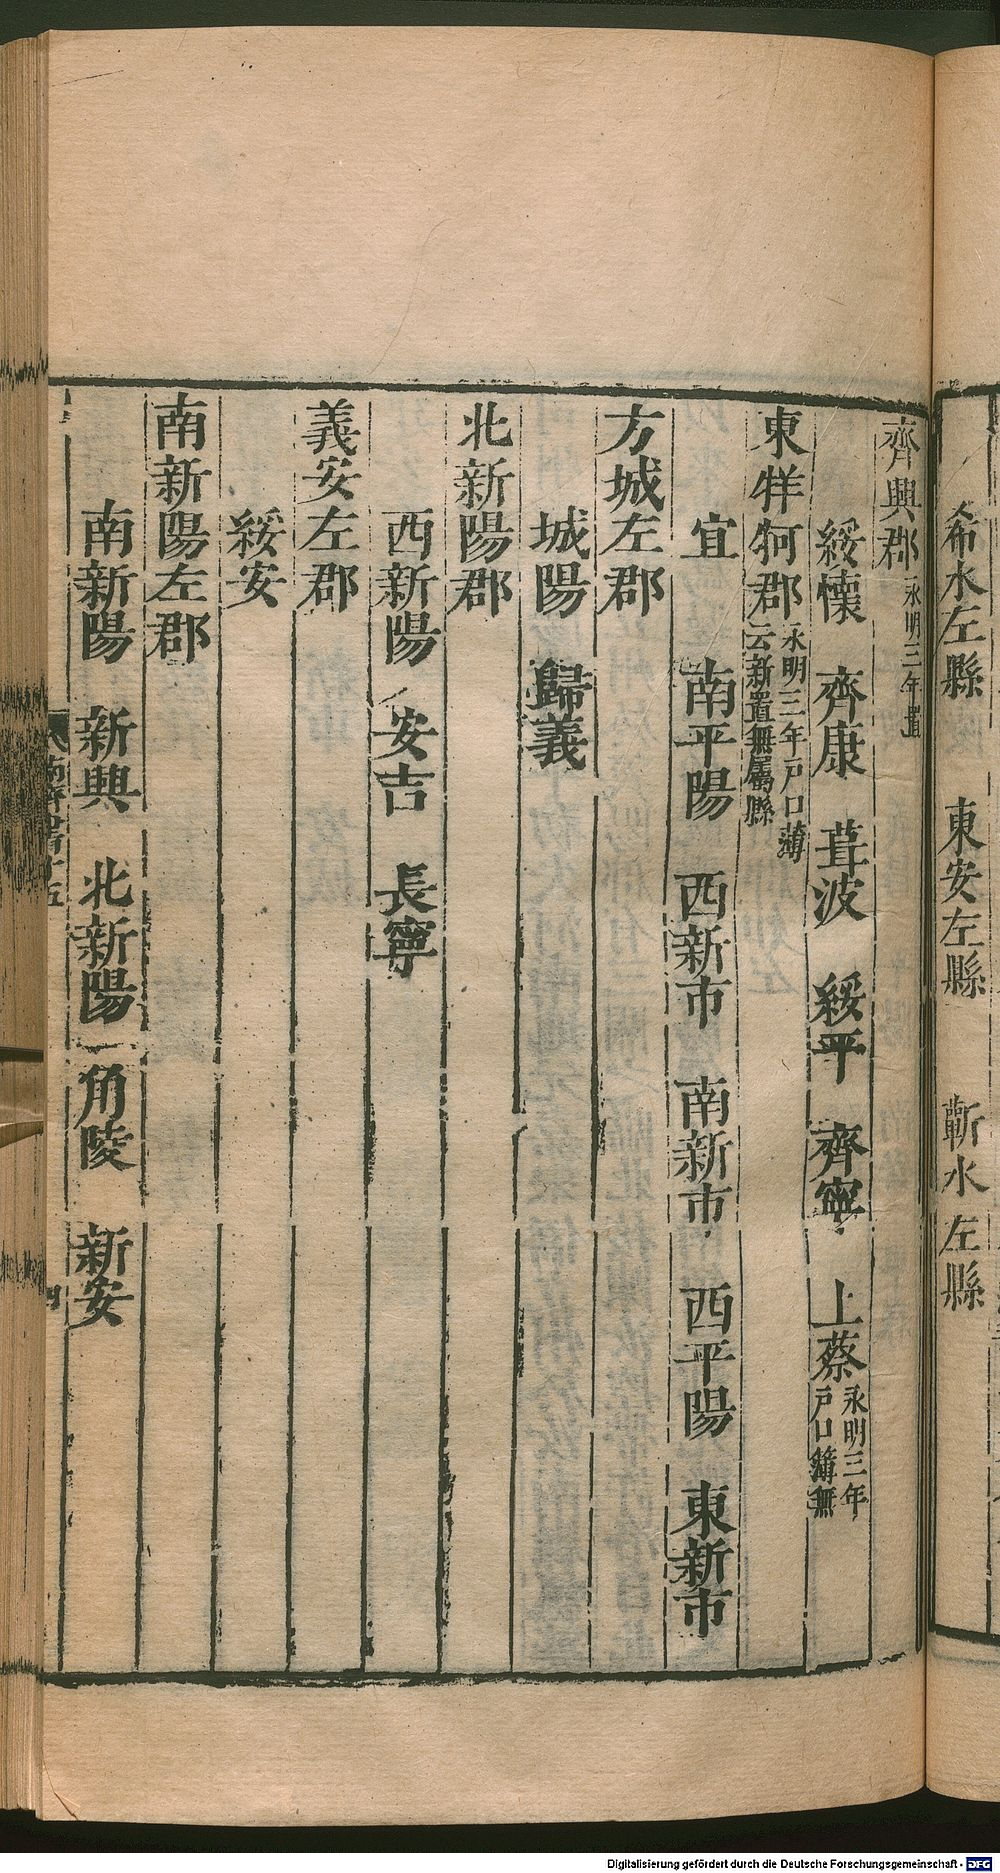 希水左縣　東安左縣　蘄水左縣
齊興郡永明三年置
綏懷　齊康　葺波　綏平　齊寧　上蔡永明三年戶口簿無
東牂牁郡永明三年戶口薄云新置無屬縣
宜　南平陽　西新市　南新市　西平陽　東新市
方城左郡
城陽　歸義
北新陽郡
西新陽　安吉　長寧
義安左郡
綏安
南新陽左郡
南新陽　新興　北新陽　角陵　新安
南齊書十五
四
Digitalisierung gefördert durch die Deutsche Forschungsgemeinschaft - DFG